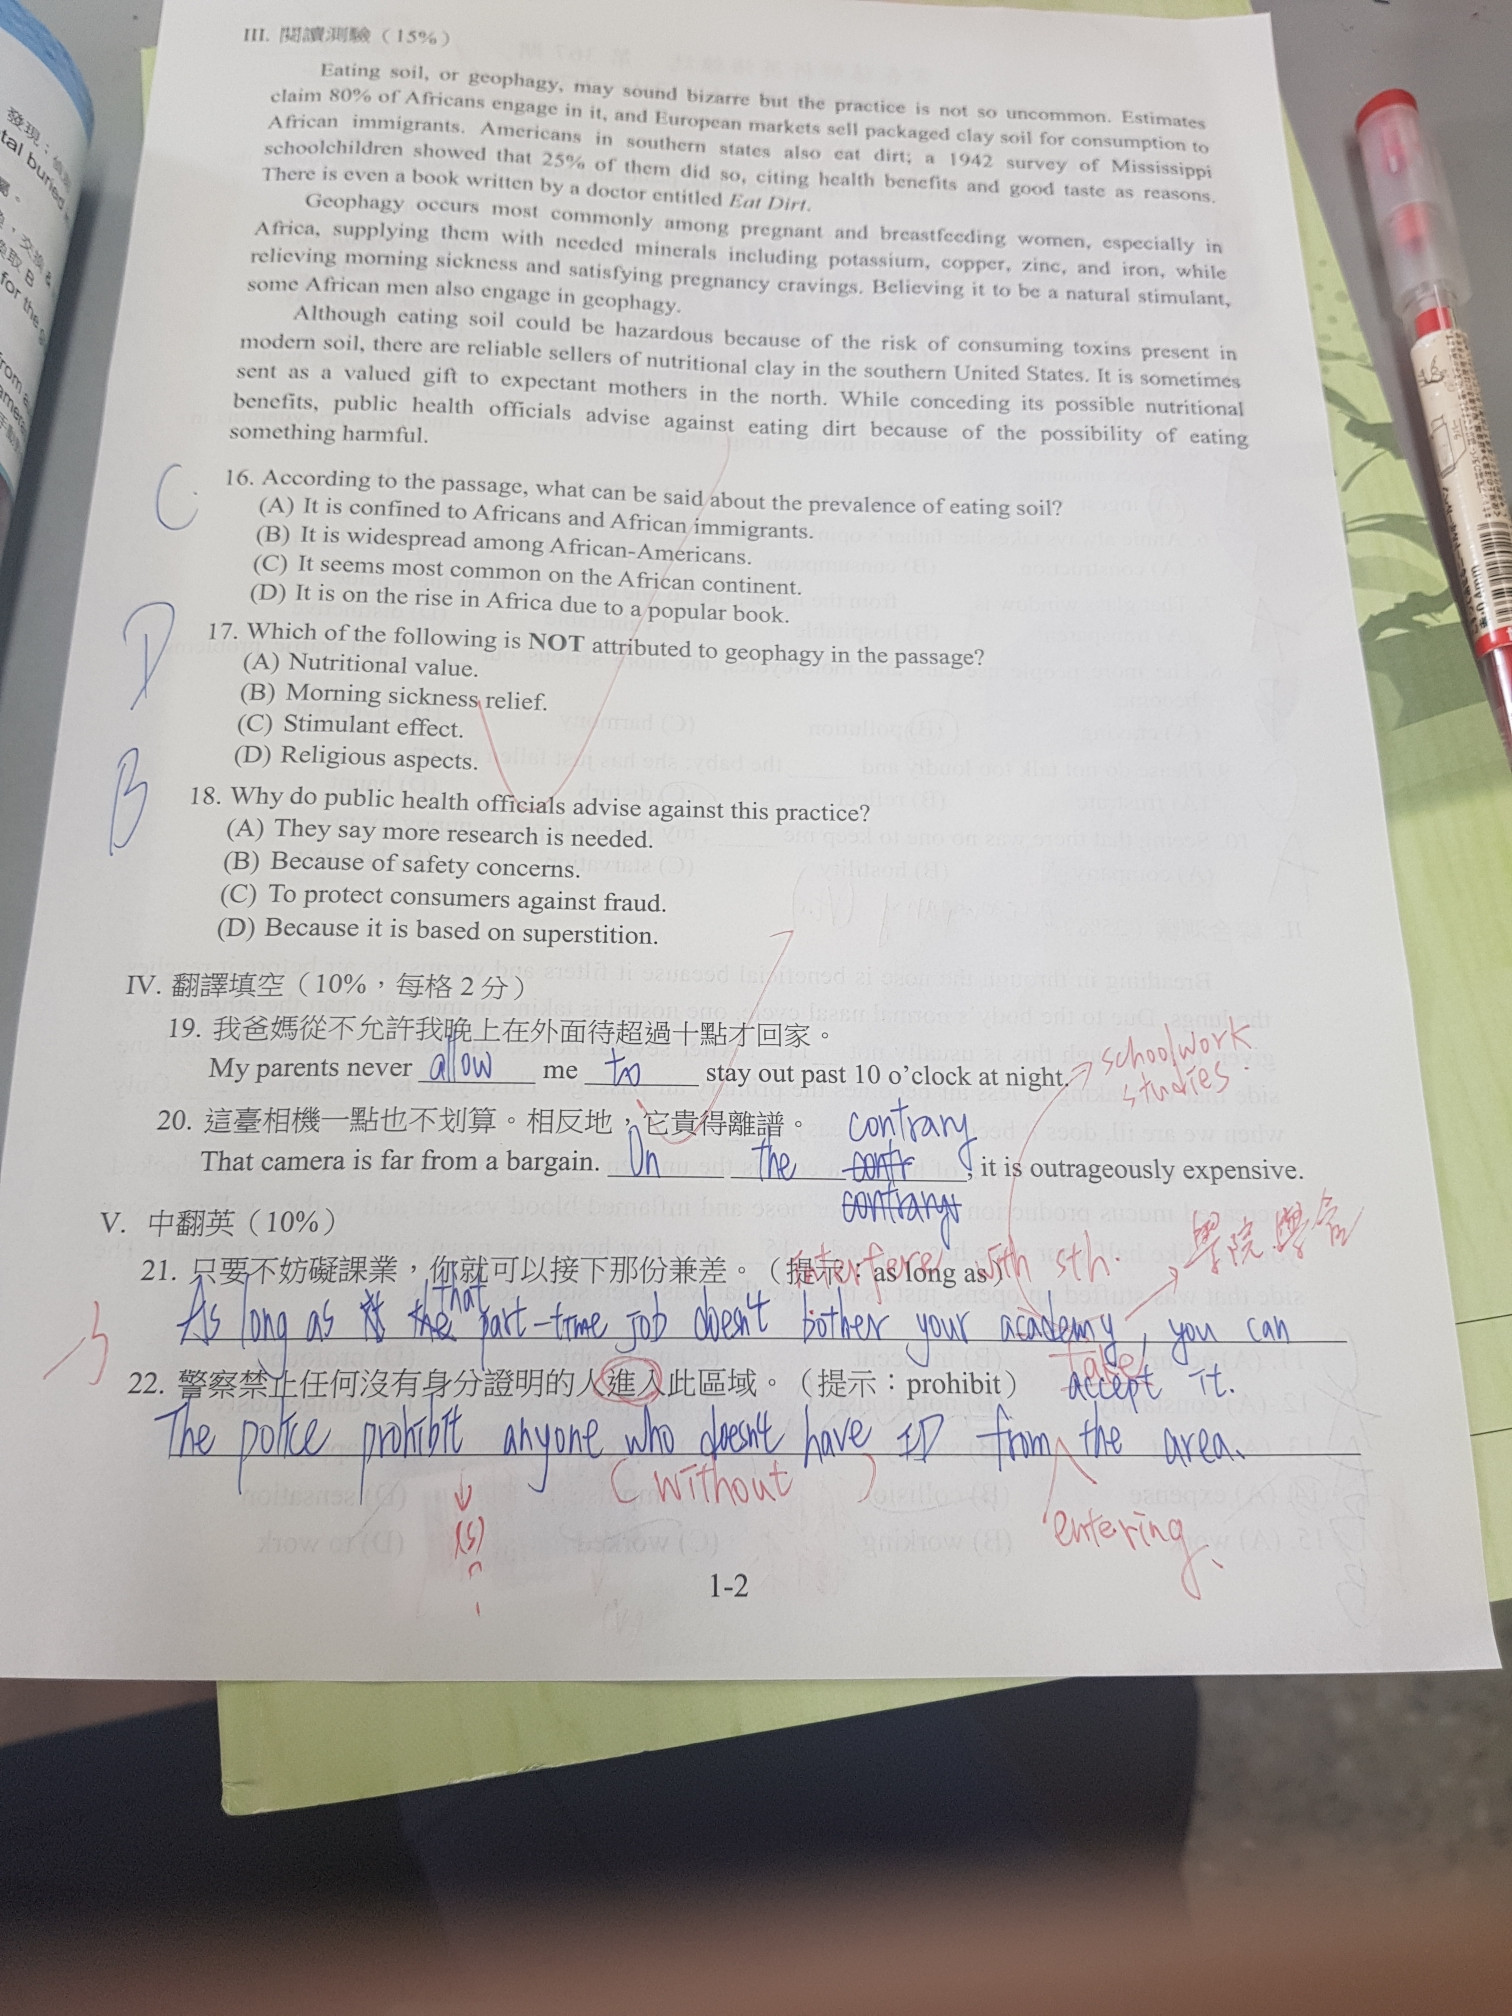 發現：
tal buried
for the
III. 閱讀測驗（15%）
Eating soil, or geophagy, may sound bizarre but the practice is not so uncommon. Estimates
claim 80% of Africans engage in it, and European markets sell packaged clay soil for consumption to
African immigrants. Americans in southern states also eat dirt; a 1942 survey of Mississippi
schoolchildren showed that 25% of them did so, citing health benefits and good taste as reasons.
There is even a book written by a doctor entitled Eat Dirt.
Geophagy occurs most commonly among pregnant and breastfeeding women, especially in
Africa, supplying them with needed minerals including potassium, copper, zinc, and iron, while
relieving morning sickness and satisfying pregnancy cravings. Believing it to be a natural stimulant,
some African men also engage in geophagy.
Although eating soil could be hazardous because of the risk of consuming toxins present in
modern soil, there are reliable sellers of nutritional clay in the southern United States. It is sometimes
sent as a valued gift to expectant mothers in the north. While conceding its possible nutritional
benefits, public health officials advise against eating dirt because of the possibility of eating
something harmful.
C 16. According to the passage, what can be said about the prevalence of eating soil?
(A) It is confined to Africans and African immigrants.
(B) It is widespread among African-Americans.
(C) It seems most common on the African continent.
(D) It is on the rise in Africa due to a popular book.
D 17. Which of the following is NOT attributed to geophagy in the passage?
(A) Nutritional value.
(B) Morning sickness relief.
(C) Stimulant effect.
(D) Religious aspects.
B 18. Why do public health officials advise against this practice?
(A) They say more research is needed.
(B) Because of safety concerns.
(C) To protect consumers against fraud.
(D) Because it is based on superstition.
IV. 翻譯填空（10%，每格 2 分）
19. 我爸媽從不允許我晚上在外面待超過十點才回家。
My parents never allow me to stay out past 10 o'clock at night.
schoolwork
studies.
20. 這臺相機一點也不划算。相反地，它貴得離譜。
contrary
That camera is far from a bargain. On the contr , it is outrageously expensive.
contrary
V. 中翻英（10%）
21. 只要不妨礙課業，你就可以接下那份兼差。（提示：as long as）
interfere with sth.
學院
As long as the that part-time job doesn't bother your academy, you can
take
accept it.
22. 警察禁止任何沒有身分證明的人進入此區域。（提示：prohibit）
The police prohibit anyone who doesn't have ID from the area.
(without)
(s)
entering.
1-2